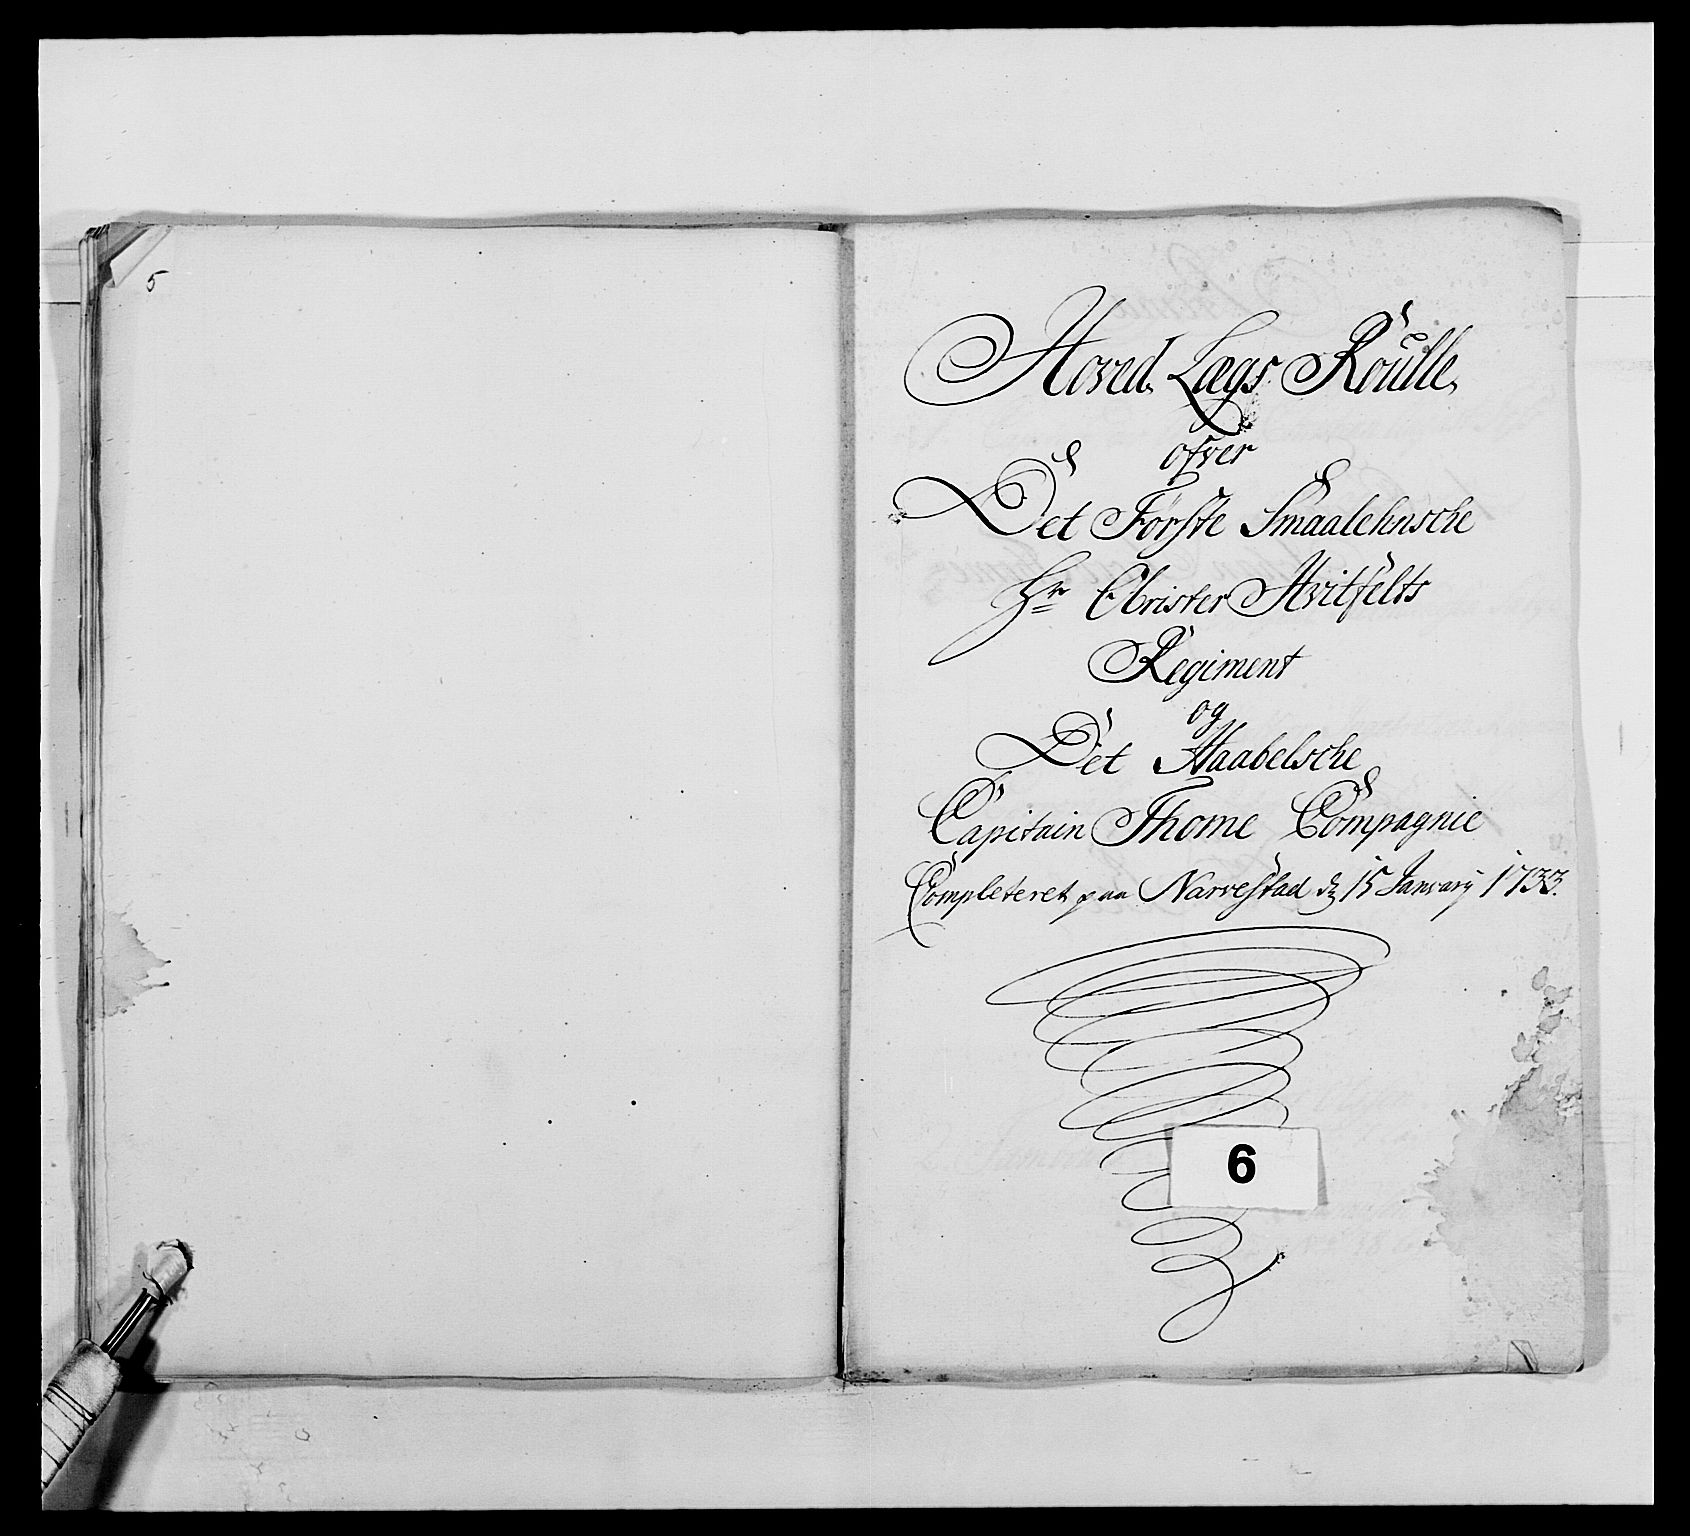 5
Hoved Lægs Roulle,
ofver
Det Første Smaalehnsche
Hr Christer Hvitfelts
Regiment
og
Det Haabelsche
Capitain Thome Compagnie
Completeret paa Narvestad d 15 January 1733.
6